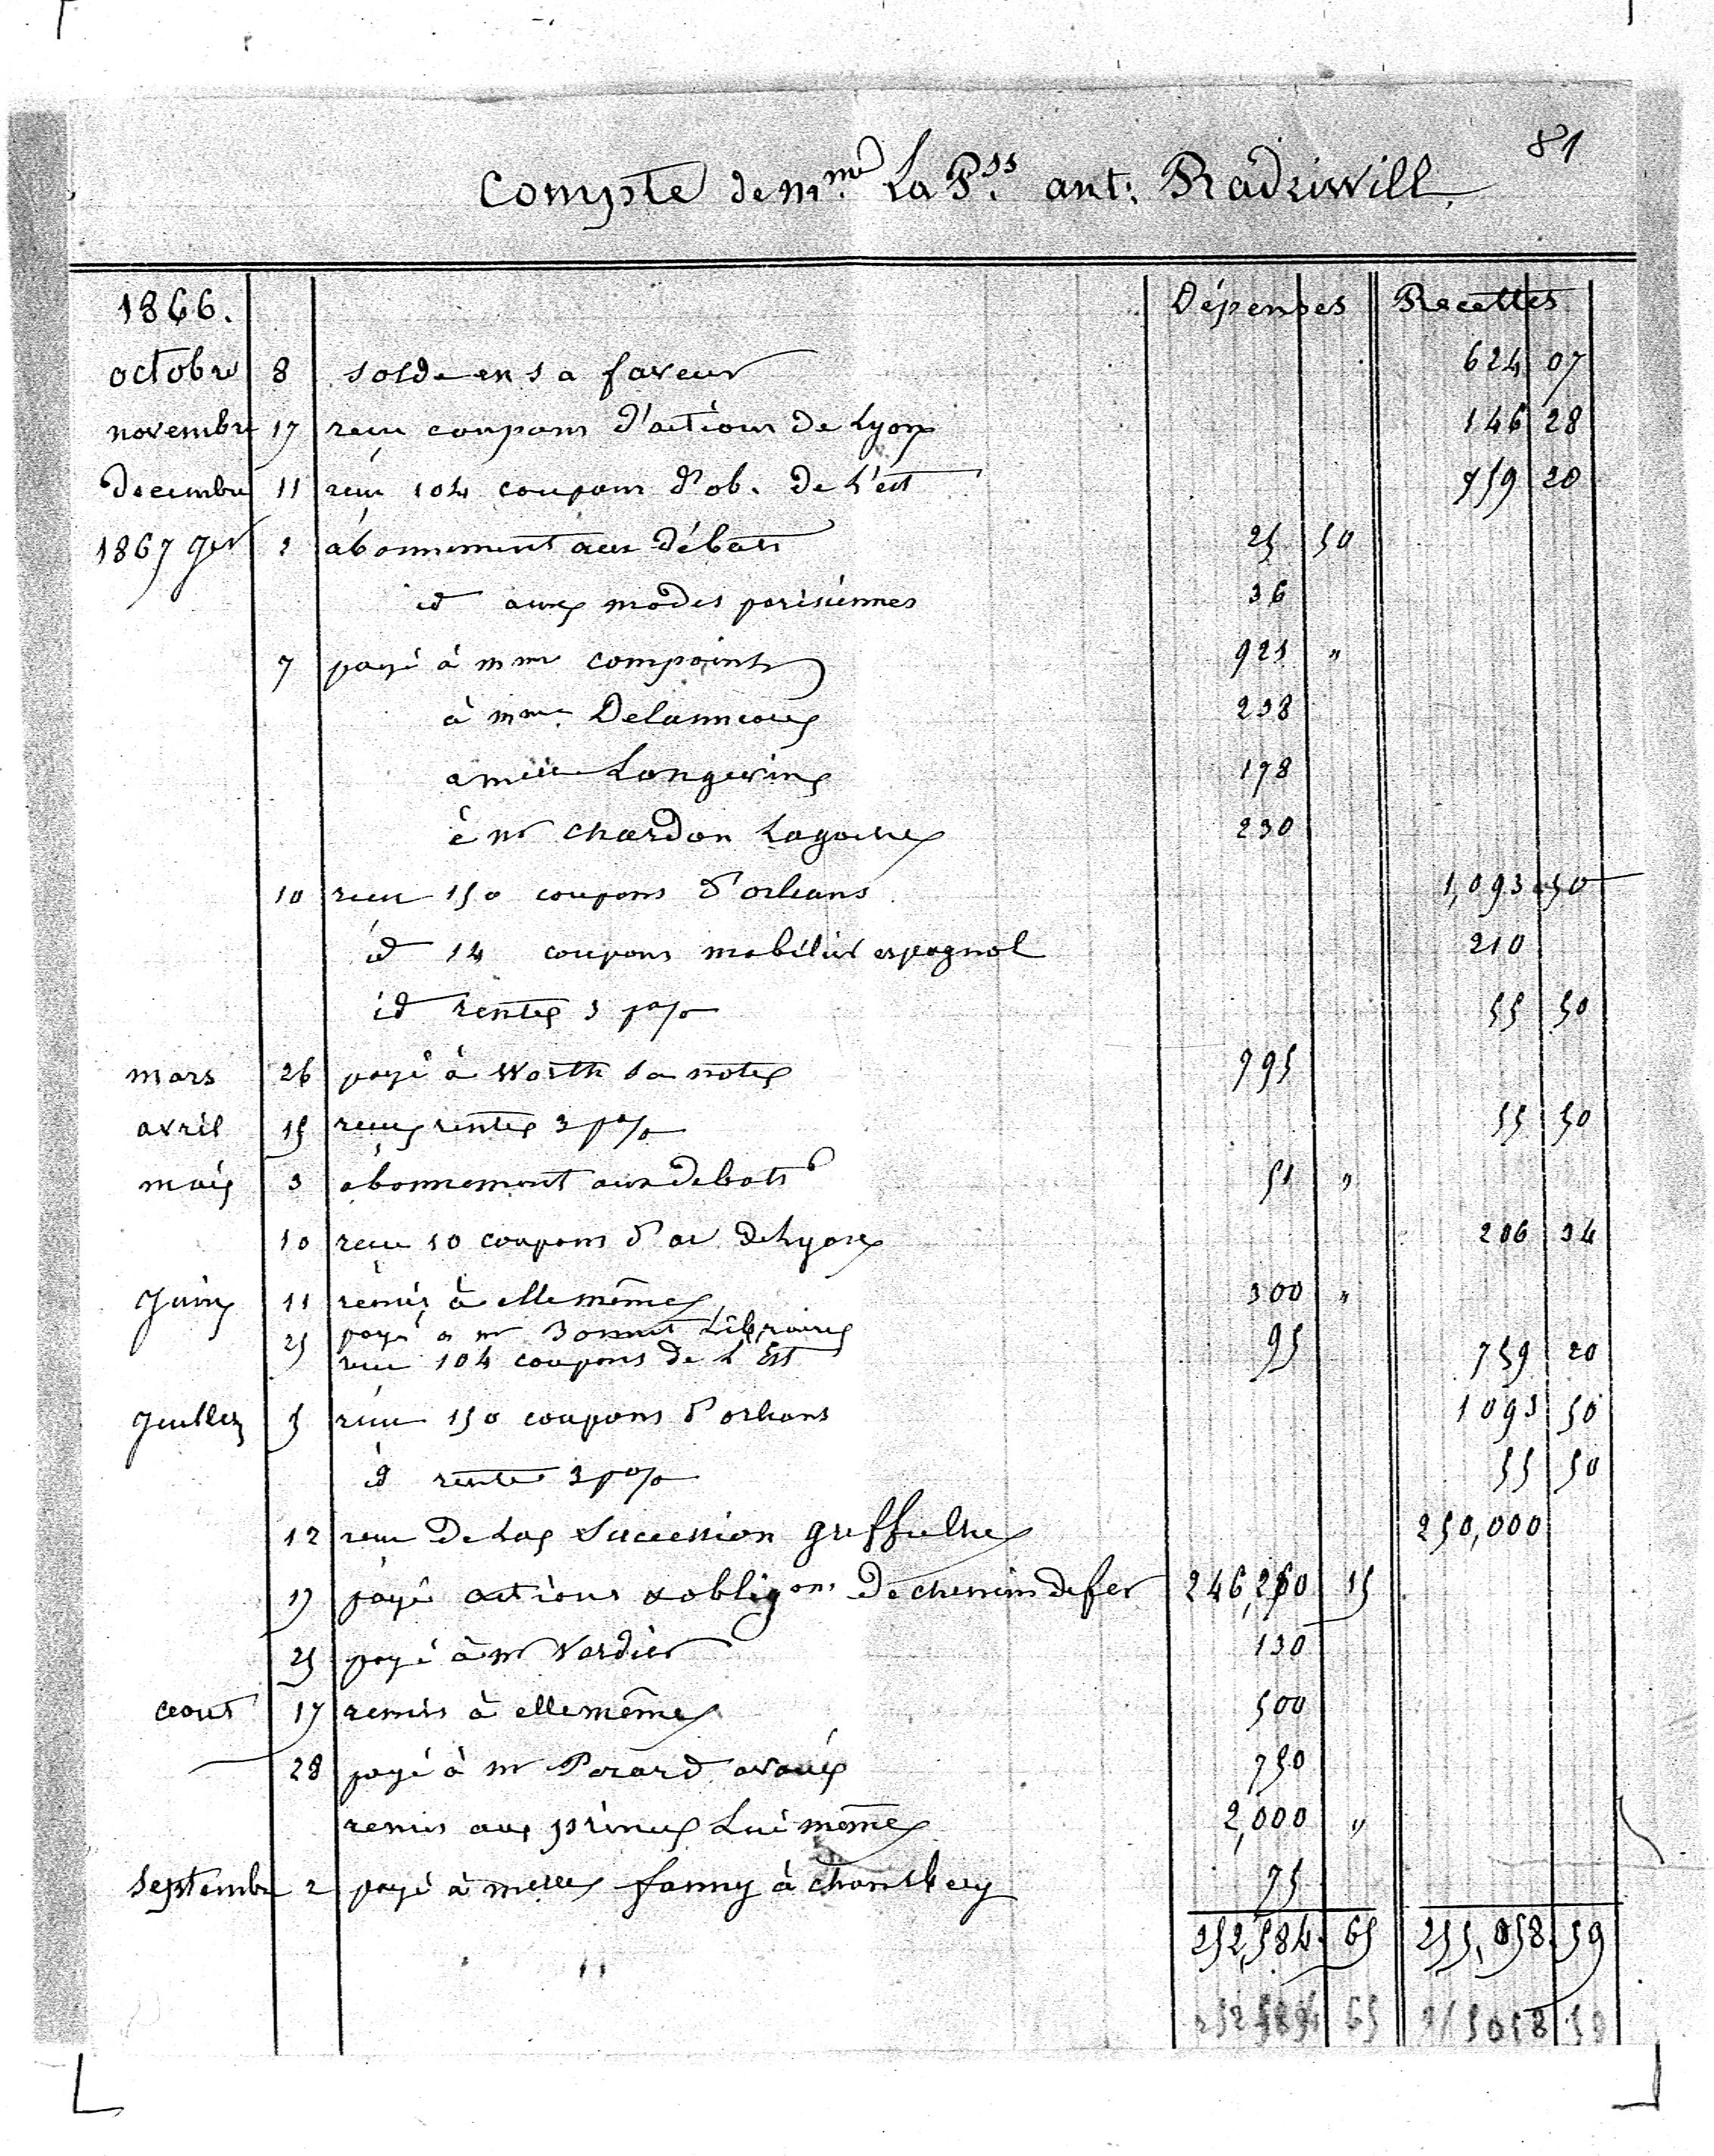 81
Compte de mme La Pss ant: Radziwill
1866. Dépenses Recettes
octobre 8 solde en sa faveur 624 07
novembre 17 recu coupons d'actions de Lyon 146 28
Decembre 11 recu 104 coupons d'ob. de L'est 759 20
1867 Jer 2 abonnement aux Débats 25 50
id aux modes parisiennes 36
7 payé à mme compoint 921 "
à mme Delannoy 238
a melle Longevin 178
à mr chardon Lagache 230
10 recu 150 coupons d'orleans 1,093 50
id 14 coupons mobilier espagnol 210
id rente 3 p% 55 50
mars 26 payé à Worth sa note 795
avril 15 recu rente 3 p% 55 50
mai 3 abonnement aux debats 51 "
10 recu 10 coupons d'ac de Lyon 206 34
Juin 11 remis à elle même 300 "
25 payé a mr Bonnet Libraire 95
recu 104 coupons de L'Est 759 20
Juillet 5 recu 150 coupons d'orleans 1093 50
id rente 3 p% 55 50
12 recu de La Succession greffulhe 250,000
17 payé actions & obligons de chemin de fer 246,260 15
25 payé à mr Verdier 130
aout 17 remis à elle même 500
28 payé à mr Perard avoué 750
remis au prince Lui même 2,000 "
Septembre 2 payé à melle fanny à chambery 75
252,584 65 255,058 59
252584 65 255058 59